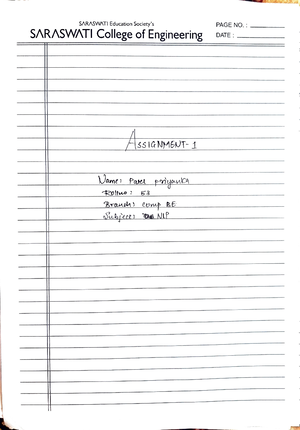 SARASWATI Education Society's
SARASWATI College of Engineering
PAGE NO. :
DATE :
ASSIGNMENT-1
Name: Patel Priyanka
Rollno: 53
Branch: Comp BE
Subject: NLP